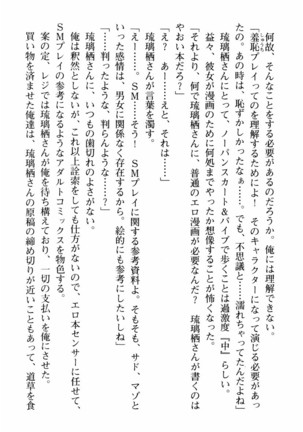 何故、そんなことをする必要があるのだろうか。俺には理解できない。
「羞恥プレイってのを理解するためによ！　そのキャラクターになって演じる必要があっ
たの。あの時は、恥ずかしかったなぁ……。でも、不思議と……濡れちゃってたんだよね」
琉璃栖さんにとって、ノーパンスカート＆バイブで歩くことは過激度『中』らしい。
益々、彼女が漫画のために何処までやったか想像することが怖くなった。
「それより、何で琉璃栖さんに、普通のエロ漫画が必要なんだ？　琉璃栖さんが書くのは
やおい本だろ？」
「え？　あ――……えと、それは……」
琉璃栖さんが言葉を濁す。
「え……。ＳＭ……そう！　ＳＭプレイに関する参考資料よ。そもそも、サド、マゾと
いった感情は、男女に関係なく存在するから。絵的にも参考にしたいしね」
「……判ったような、判らんような……」
琉璃栖さんに、いつもの歯切れのよさがない。
俺は釈然としないが、これ以上詮索をしても仕方がないので、エロ本センサーに任せて、
ＳＭプレイの参考になるようなアダルトコミックスを物色する。
案の定、レジでは琉璃栖さんが俺を待ち構えており、一切の支払いを俺にさせた。
買い物を済ませた俺達は、琉璃栖さんの原稿の締め切りが近いこともあって、道草を食